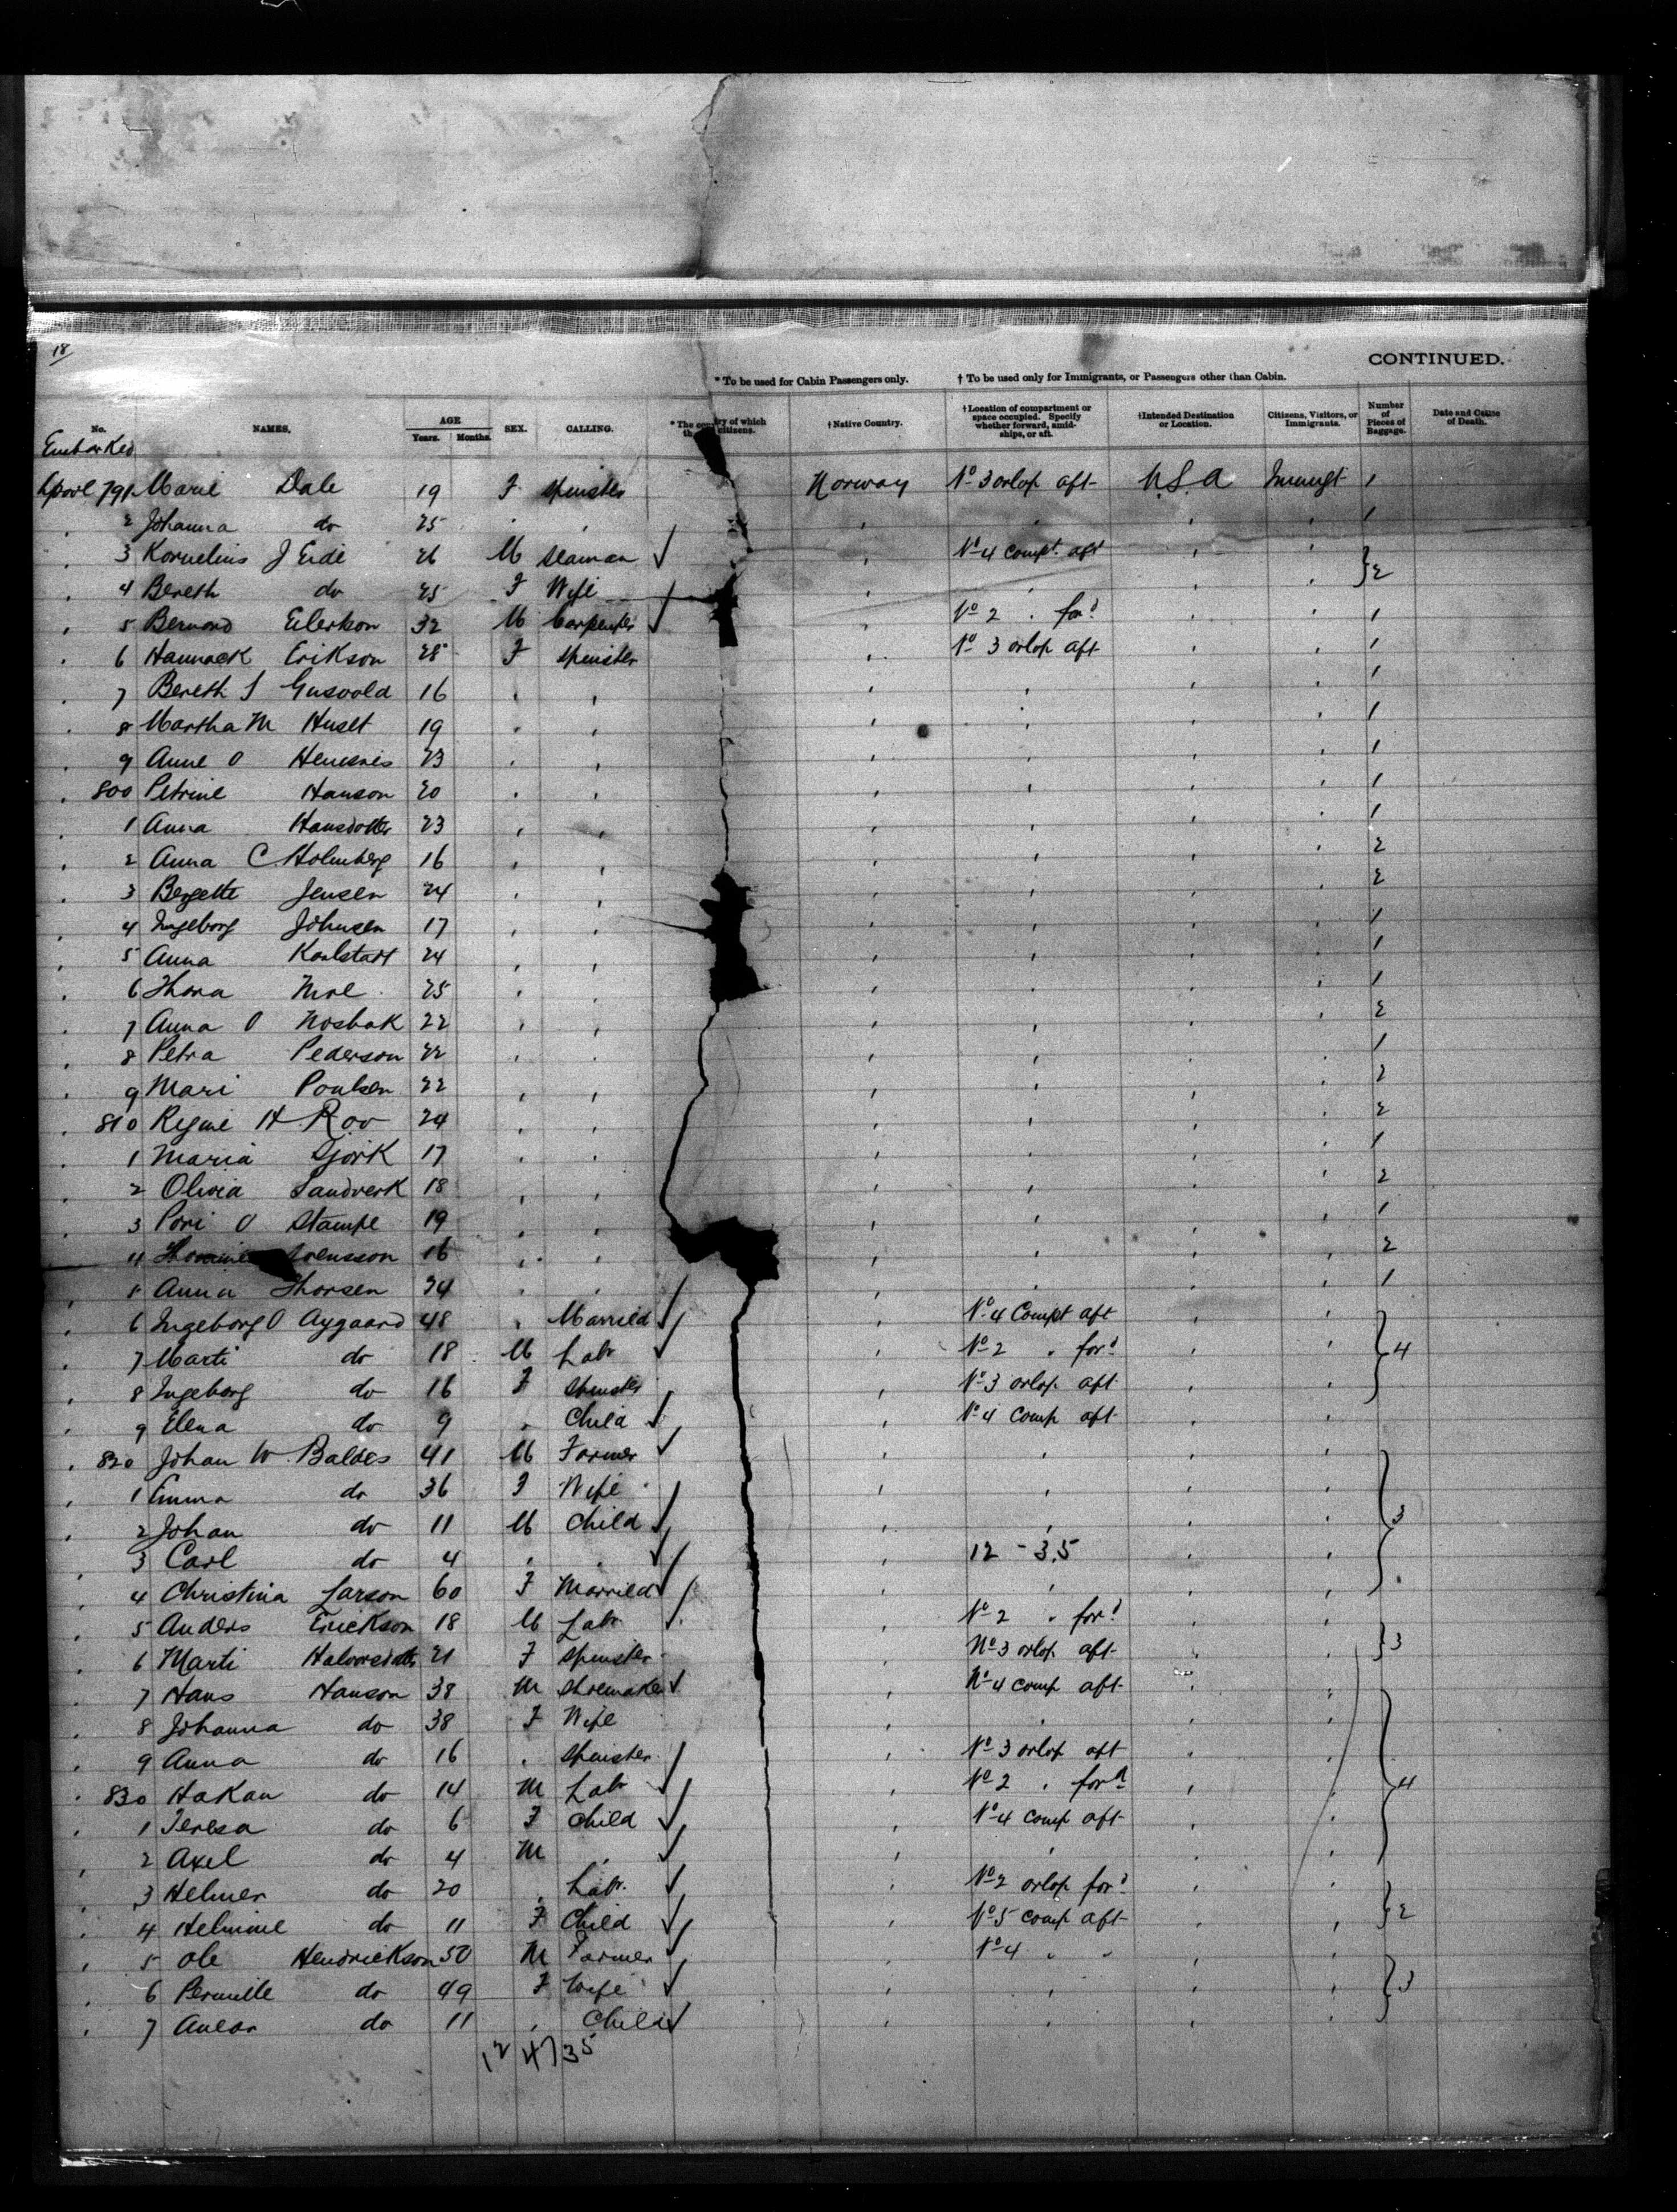 18
CONTINUED.
* To be used for Cabin Passengers only. † To be used only for Immigrants, or Passengers other than Cabin.
No. NAMES. AGE Years. Months. SEX. CALLING. * The country of which citizens. † Native Country. † Location of compartment or space occupied. Specify whether forward, amidships, or aft. † Intended Destination or Location. Citizens, Visitors, or Immigrants. Number of Pieces of Baggage. Date and Cause of Death.
Embarked
Lpool 791 Marie Dale 19 F spinster Norway No 3 orlop aft U.S.A Immigt 1
2 Johanna do 25 " " " " " " 1
3 Kornelius J Eide 26 M seaman " No 4 compt aft " " } 2
4 Bereth do 25 F Wife " " " "
5 Bernard Eilertson 32 M Carpenter " No 2 " for'd " " 1
6 Erikson 28 F spinster " No 3 orlop aft " " 1
7 Bereth S 16 " " " " " " 1
8 Martha M Huset 19 " " " " " " 1
9 Anne O 23 " " " " " " 1
800 Petrine Hanson 20 " " " " " " 1
1 Anna Hansdotter 23 " " " " " " 1
2 Anna C Holmberg 16 " " " " " " 2
3 Bergette Jensen 24 " " " " " " 2
4 Ingeborg Johnsen 17 " " " " " " 1
5 Anna Karlstadt 24 " " " " " " 1
6 Thora Moe 25 " " " " " " 1
7 Anna O Nosbak 22 " " " " " " 2
8 Petra Pederson 22 " " " " " " 1
9 Mari Poulsen 22 " " " " " " 2
810 Regine H Roo 24 " " " " " " 2
1 Maria Sjork 17 " " " " " " 1
2 Olivia Sandverk 18 " " " " " " 2
3 Pori O Stampe 19 " " " " " " 1
4 16 " " " " " " 2
5 Anna Thorsen 24 " " " " " " 1
6 Ingeborg O Aygaard 48 " Married " No 4 Compt aft " " } 4
7 Marti do 18 M Labr " No 2 " for'd " "
8 Ingeborg do 16 F spinster " No 3 orlop aft " "
9 Elena do 9 " Child " No 4 Comp aft " "
820 Johan W Baldes 41 M Farmer " " " " } 3
1 Emma do 36 F Wife " " " "
2 Johan do 11 M Child " " " "
3 Carl do 4 " " " 12 - 3.5 " "
4 Christina Larson 60 F Married " " " "
5 Anders Erickson 18 M Labr " No 2 " for'd " " } 3
6 Marti Halvorsdatter 21 F spinster " No 3 orlop aft " "
7 Hans Hanson 38 M shoemaker " No 4 comp aft " " } 4
8 Johanna do 38 F Wife " " " "
9 Anna do 16 " spinster " No 3 orlop aft " "
830 Hakan do 14 M Labr " No 2 " for'd " "
1 Teresa do 6 F Child " No 4 comp aft " "
2 Axel do 4 M " " " " "
3 Helmer do 20 " Labr " No 2 orlop for'd " " } 2
4 Helmine do 11 F Child " No 5 comp aft " "
5 Ole Hendrickson 50 M Farmer " No 4 " " " " } 3
6 Pernille do 49 F Wife " " " "
7 do 11 " Child " " " "
12 47 35